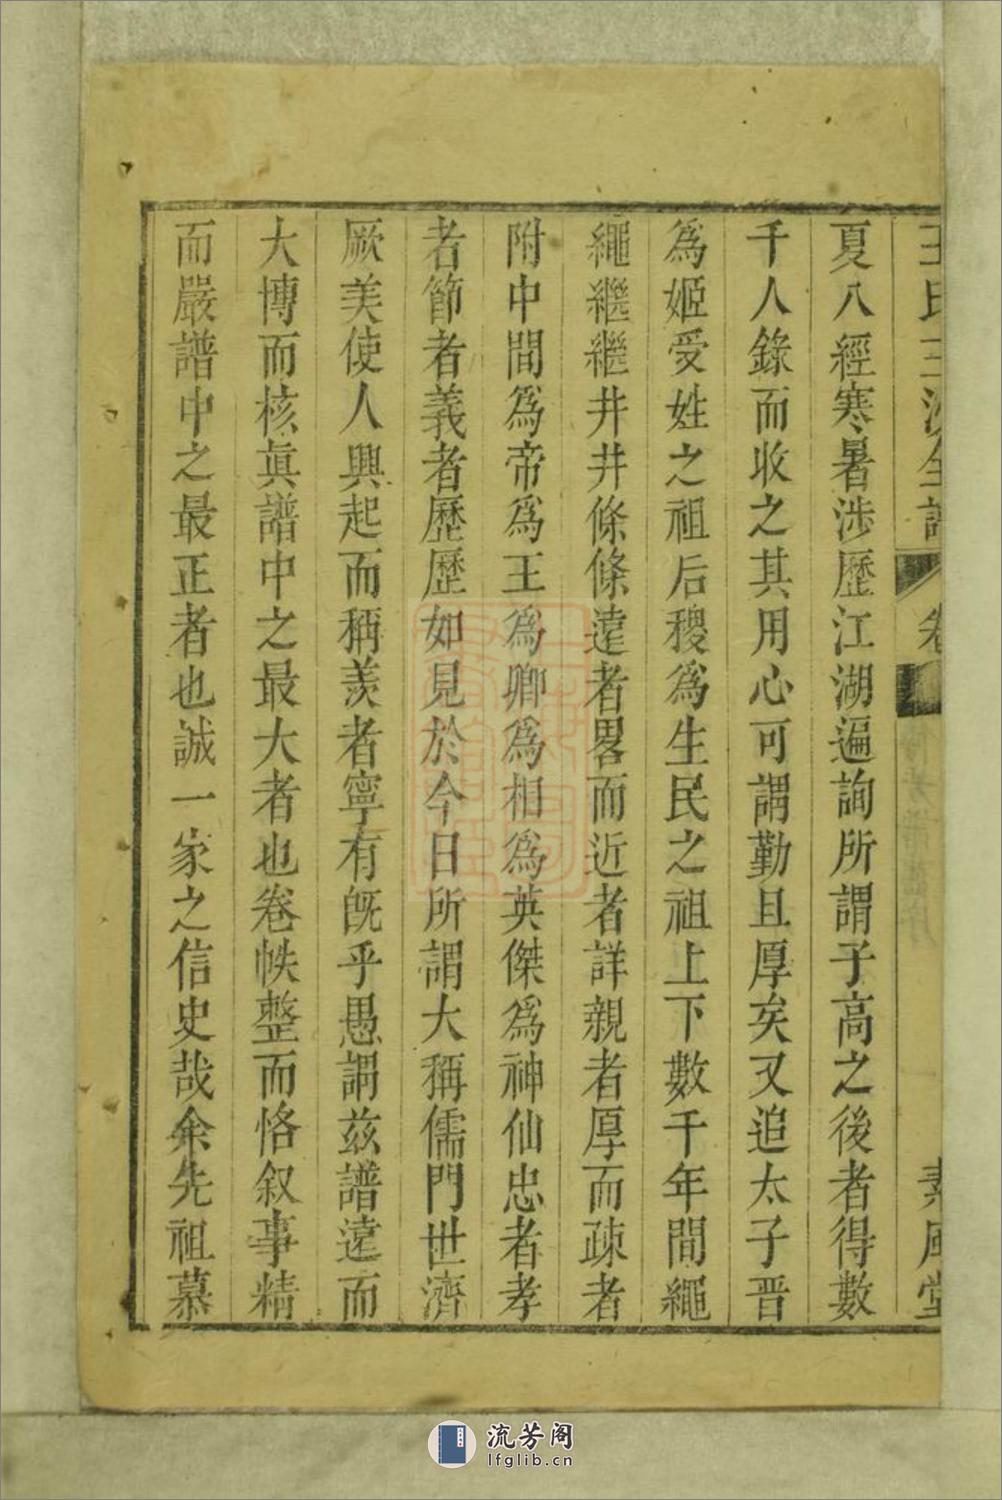 王氏三沙全譜
卷
素風堂
夏八經寒暑涉歷江湖遍詢所謂子高之後者得數
千人錄而收之其用心可謂勤且厚矣又追太子晉
為姬受姓之祖后稷為生民之祖上下數千年間繩
繩繼繼井井條條遠者畧而近者詳親者厚而疎者
附中間為帝為王為卿為相為英傑為神仙忠者孝
者節者義者歷歷如見於今日所謂大稱儒門世濟
厥美使人興起而稱羨者寧有旣乎愚謂茲譜遠而
大博而核眞譜中之最大者也卷帙整而恪叙事精
而嚴譜中之最正者也誠一家之信史哉余先祖慕
流芳阁
lfglib.cn